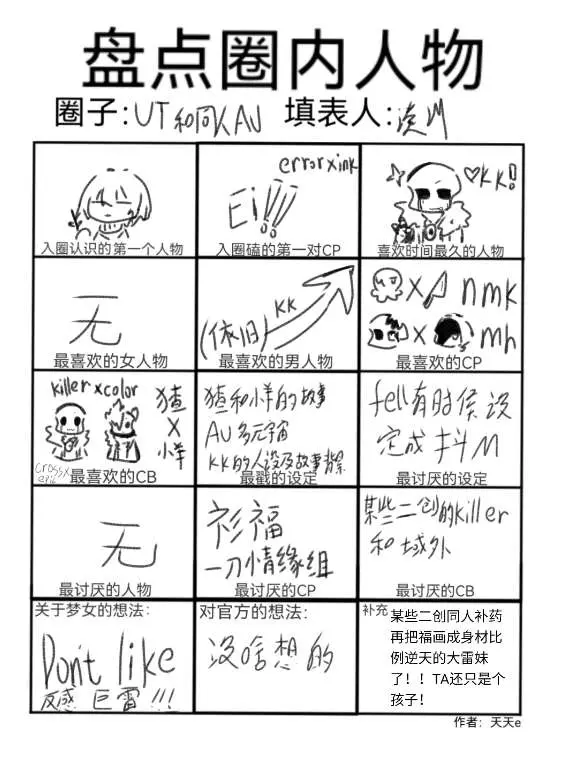 盘点圈内人物
圈子:UT和同人AU 填表人:凌川
入圈认识的第一个人物
errorxink
Ei!!!
入圈磕的第一对CP
♡KK!
喜欢时间最久的人物
无
最喜欢的女人物
KK
(依旧)
最喜欢的男人物
X nmk
X mh
最喜欢的CP
killer x color
猹
X
小羊
crossx
epic
最喜欢的CB
猹和小羊的故事
AU多元宇宙
KK的人设及故事背景
最戳的设定
fell有时候设
定成抖M
最讨厌的设定
无
最讨厌的人物
衫福
一刀情缘组
最讨厌的CP
某些二创的killer
和域外
最讨厌的CB
关于梦女的想法:
Don't like
反感 巨雷!!!
对官方的想法:
没啥想的
补充
某些二创同人补药
再把福画成身材比
例逆天的大雷妹
了！！TA还只是个
孩子！
作者：天天e